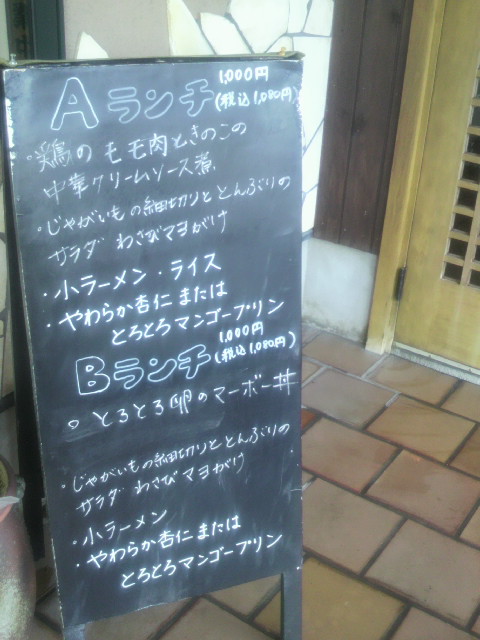 Aランチ 1,000円
(税込1,080円)
・鶏のモモ肉ときのこの
中華クリームソース煮
・じゃがいもの細切りととんぶりの
サラダ わさびマヨがけ
・小ラーメン・ライス
・やわらか杏仁または
とろとろマンゴープリン
Bランチ 1,000円
(税込1,080円)
○とろとろ卵のマーボー丼
・じゃがいもの細切りととんぶりの
サラダ わさびマヨがけ
・小ラーメン
・やわらか杏仁または
とろとろマンゴープリン